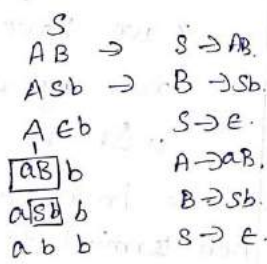 S
AB → S → AB.
ASb → B → Sb.
A ϵ b S → ϵ.
aB b A → aB.
a Sb b B → Sb.
a b b S → ϵ.